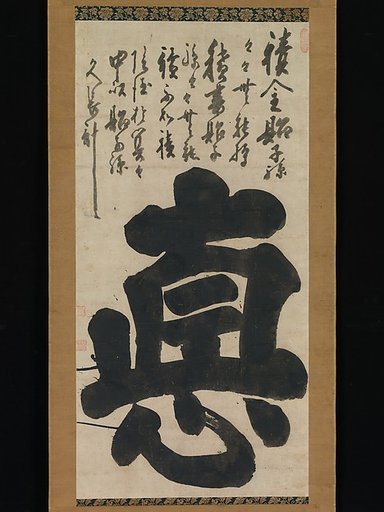 積金貽子孫
々々無能
積書貽子
孫々々無能
讀不如積
陰德於冥々
中以貽子孫
久長計
悳